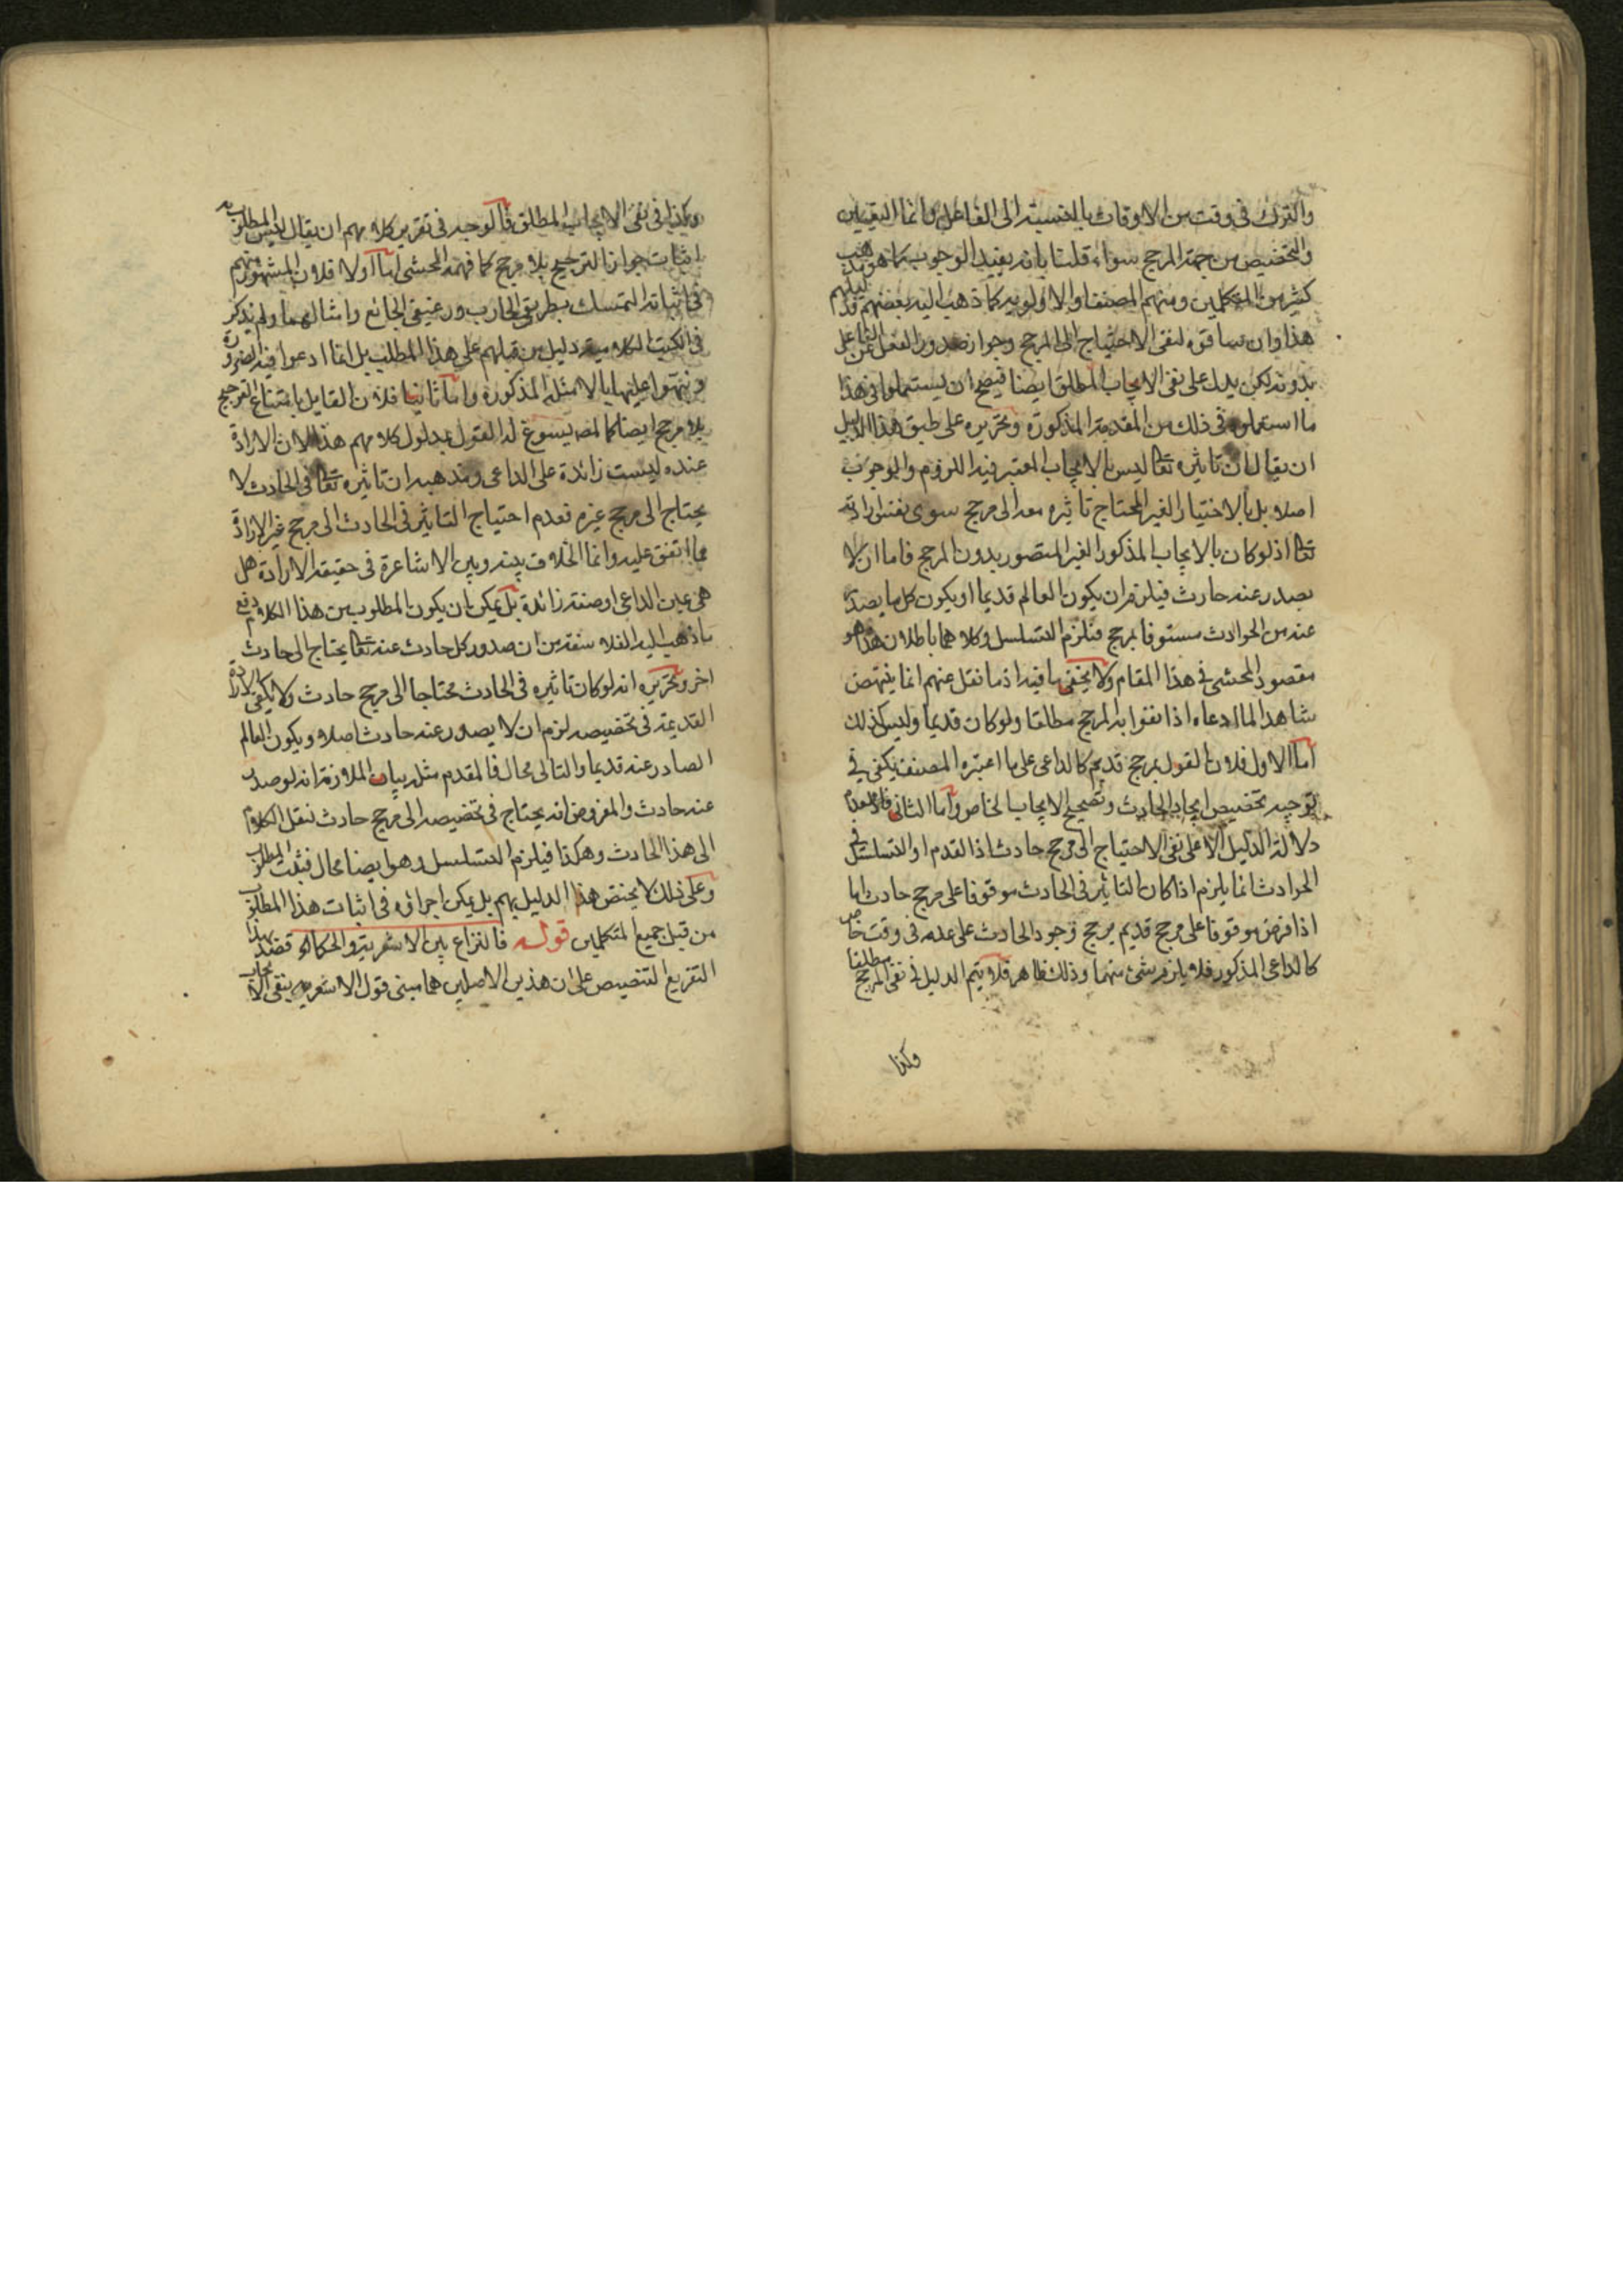 والترك فى وقت من الاوقات بالنسبة الى الفاعل وانما التعيين
والتخصيص من جهة المرجح سواء قلنا بانه يفيد الوجوب كما هو مذهب
كثير من المتكلمين ومنهم المصنف او الاولوية كما ذهب اليه بعضهم فدليلهم
هذا وان ساقوه لنفى الاحتياج الى المرجح وجواز صدور الفعل عن الفاعل
بدونه لكن يدل على نفى الايجاب المطلق ايضا فيصح ان يستعملوا فى هذا
ما استعملوه فى ذلك من المقدمة المذكورة وتحريره على طبق هذا الدليل
ان يقال ان تاثيره تعا ليس بالايجاب المعتبر فيه اللزوم والوجوب
اصلا بل بالاختيار الغير المحتاج تاثيره معه الى مرجح سوى نفس ارادته
تعا اذ لو كان بالايجاب المذكور الغير المتصور بدون المرجح فاما ان لا
يصدر عنه حادث فيلزم ان يكون العالم قديما او يكون كل ما يصدر
عنه من الحوادث مسبوقا بمرجح فيلزم التسلسل وكلاهما باطلان هذا هو
مقصود المحشى فى هذا المقام ولا يخفى ما فيه اذ ما نقل عنهم انما ينتهض
شاهدا لما ادعاه اذا نفوا به المرجح مطلقا ولو كان قديما وليس كذلك
اما الاول فلان القول بمرجح قديم كالداعى على ما اعتبره المصنف يكفى فى
توجيه تخصيص ايجاد الحادث وتصحيح الايجاب الخاص واما الثانى فلعدم
دلالة الدليل الا على نفى الاحتياج الى مرجح حادث اذ القدم او التسلسل فى
الحوادث انما يلزم اذا كان التاثير فى الحادث موقوفا على مرجح حادث اما
اذا فرض موقوفا على مرجح قديم يرجح وجود الحادث على عدمه فى وقت خاص
كالداعى المذكور فلا يلزم شئ منهما وذلك ظاهر فلا يتم الدليل فى نفى المرجح مطلقا
وكذا
وكذا فى نفى الايجاب المطلق فالوجه فى تقرير كلامهم ان يقال ليس المطلوب به
اثبات جواز الترجيح بلا مرجح كما فهمه المحشى اما اولا فلان المشهور منهم
فى اثباته التمسك بطريقى الهارب ورغيفى الجائع وامثالهما ولم يذكر
فى الكتب الكلامية دليل من قبلهم على هذا المطلب بل انما ادعوا فيه الضرورة
ونبهوا عليها بالامثلة المذكورة واما ثانيا فلان القايل بامتناع الترجيح
بلا مرجح ايضا كالمصـ يسوغ له القول بمدلول كلامهم هذا لان الارادة
عنده ليست زائدة على الداعى ومذهبه ان تاثيره تعا فى الحادث لا
يحتاج الى مرجح غيره فعدم احتياج التاثير فى الحادث الى مرجح غير الارادة
مما اتفق عليه وانما الخلاف بينه وبين الاشاعرة فى حقيقة الارادة هل
هى عين الداعى او صفة زائدة بل يمكن ان يكون المطلوب من هذا الكلام دفع
ما ذهب اليه الفلاسفة من ان صدور كل حادث عنه تعا يحتاج الى حادث
اخر وتحريره انه لو كان تاثيره فى الحادث محتاجا الى مرجح حادث ولا يكفى الارادة
القديمة فى تخصيصه لزم ان لا يصدر عنه حادث اصلا ويكون العالم
الصادر عنه قديما والتالى محال فالمقدم مثله بيان الملازمة انه لو صدر
عنه حادث والمفروض انه يحتاج فى تخصيصه الى مرجح حادث ننقل الكلام
الى هذا الحادث وهكذا فيلزم التسلسل وهو ايضا محال فثبت المطلوب
وعلى ذلك لا يختص هذا الدليل بهم بل يمكن اجراؤه فى اثبات هذا المطلوب
من قبل جميع المتكلمين قوله فالنزاع بين الاشعرية والحكماء قصد بهذا
التفريع التنصيص على ان هذين الاصلين هما مبنى قول الاشعرية بنفى الايجاب